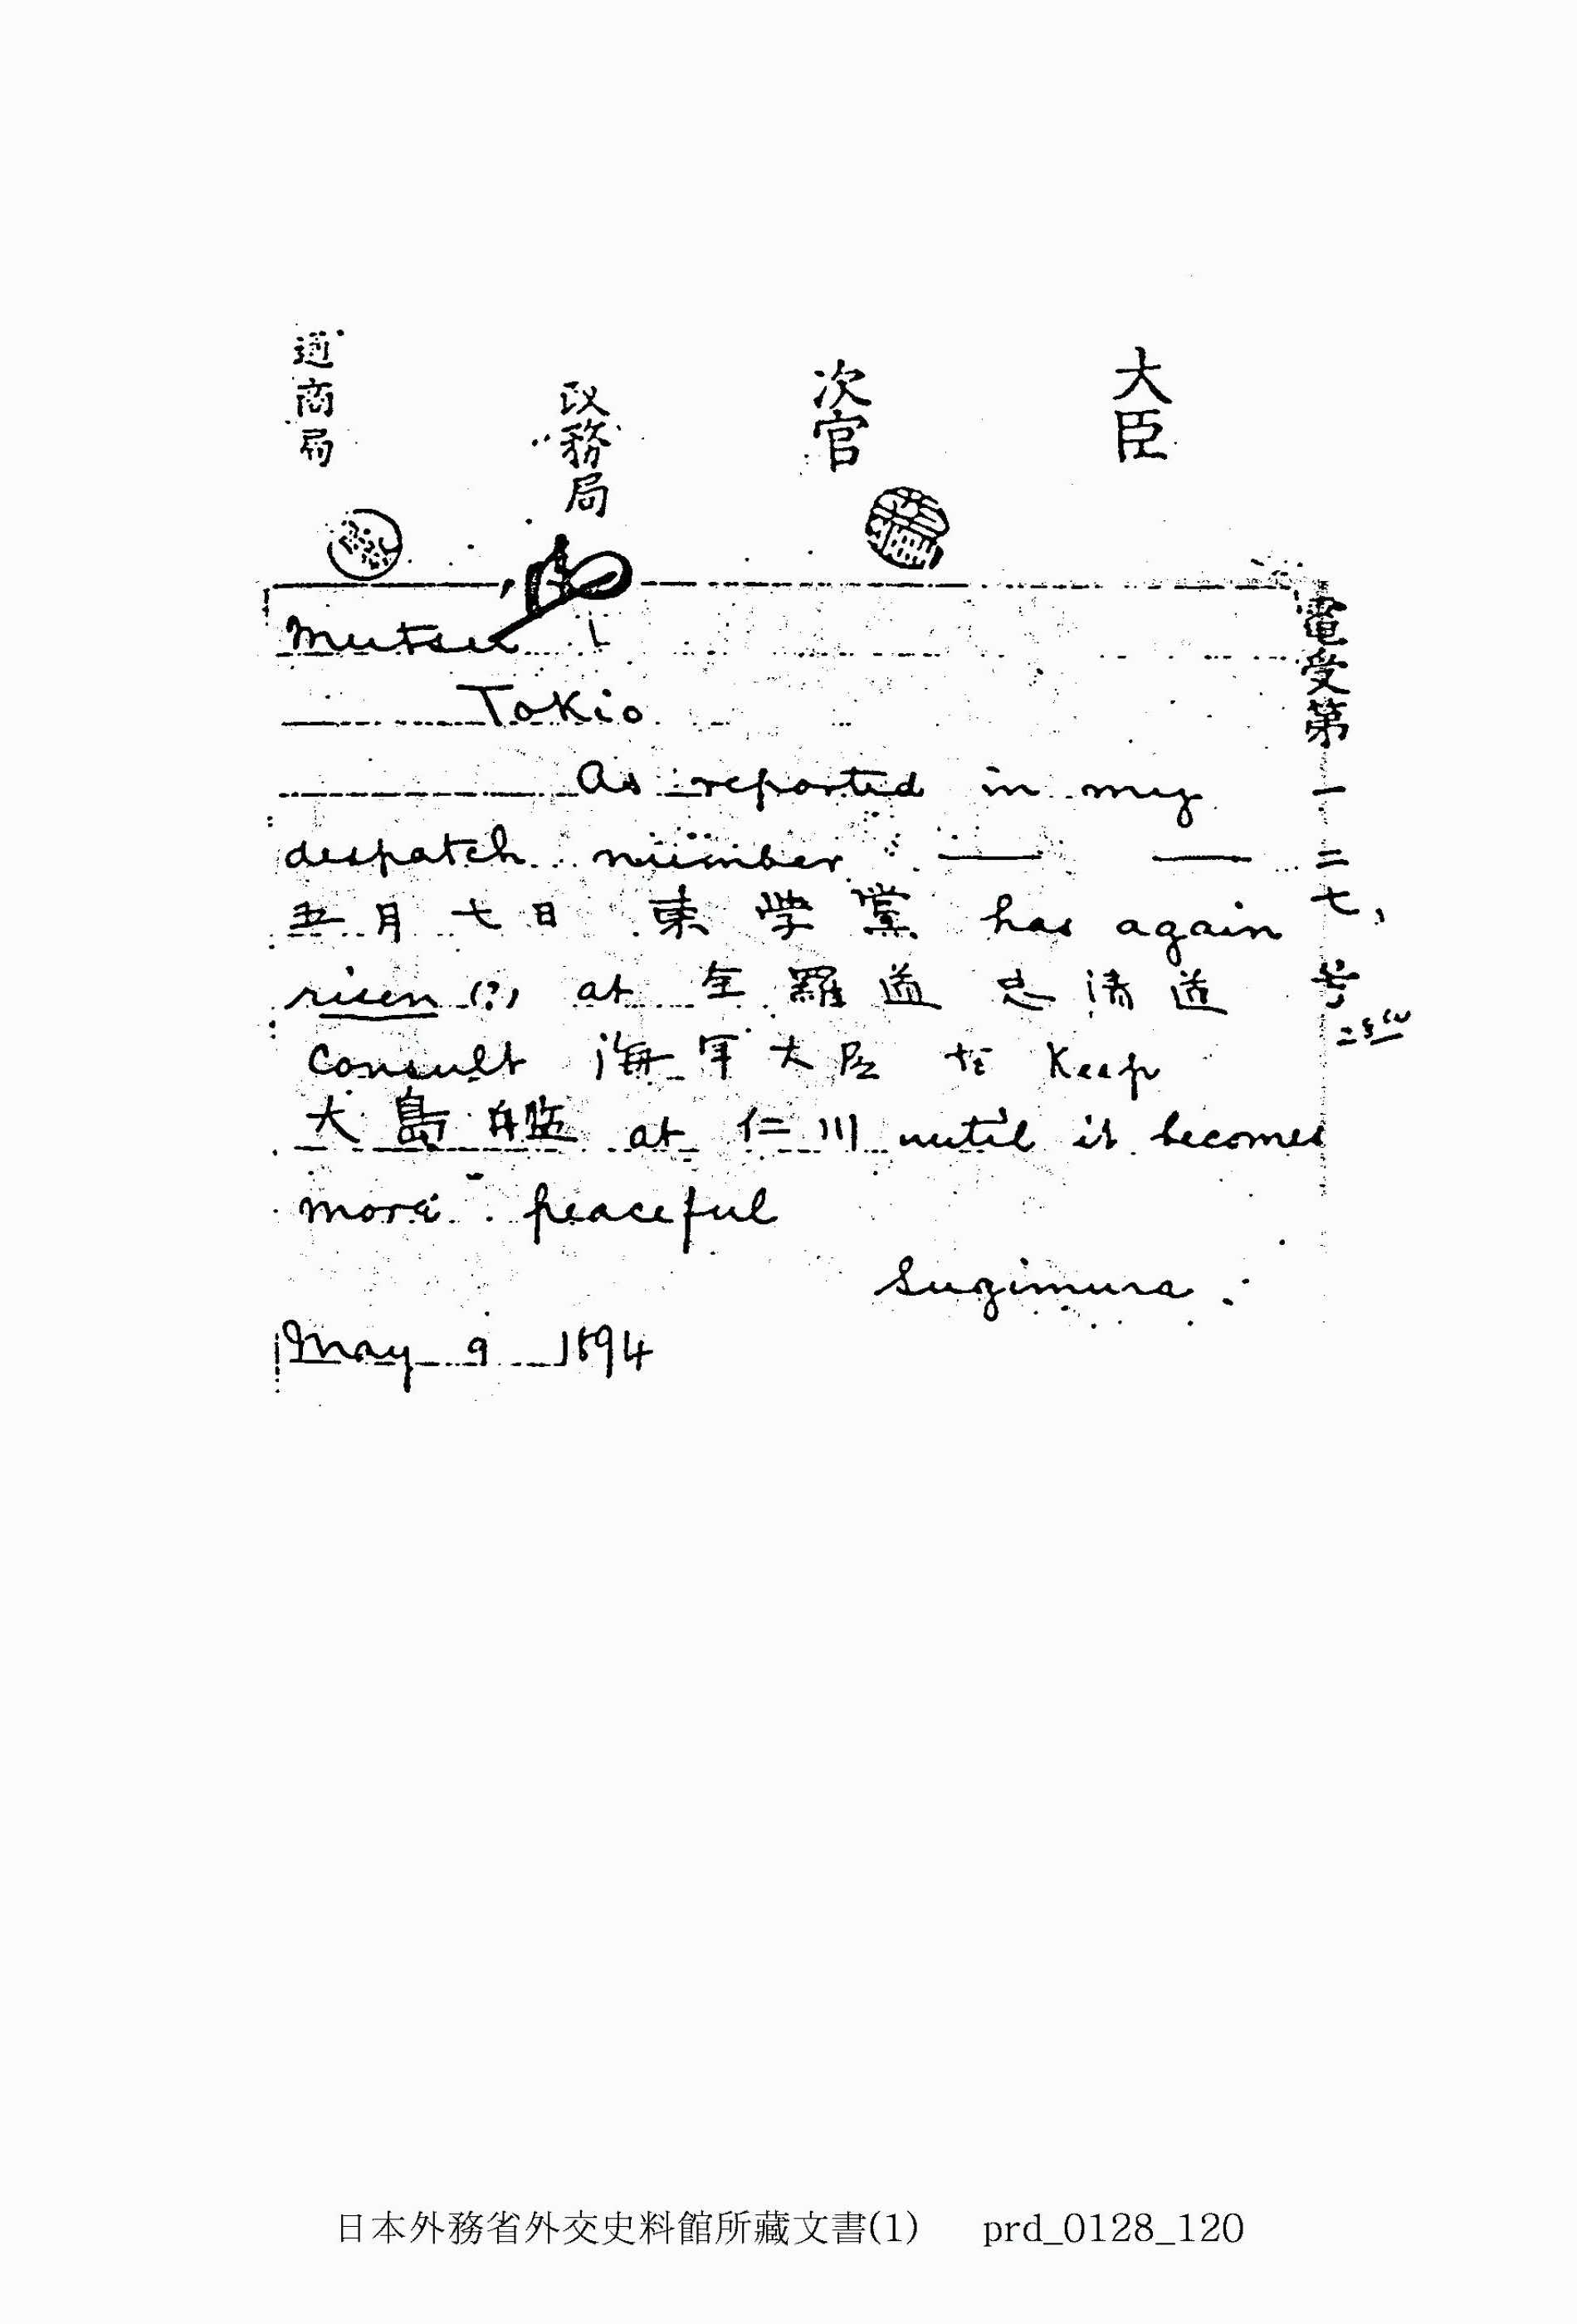 大臣
次官
政務局
通商局
電受第一二七号
Mutsu
Tokio
As reported in my
despatch number — —
五月七日 東学黨 has again
risen (?) at 全羅道 忠清道
Consult 海軍大臣 to Keep
大島艦 at 仁川 until it becomes
more peaceful
Sugimura.
May 9 1894
日本外務省外交史料館所藏文書(1) prd_0128_120